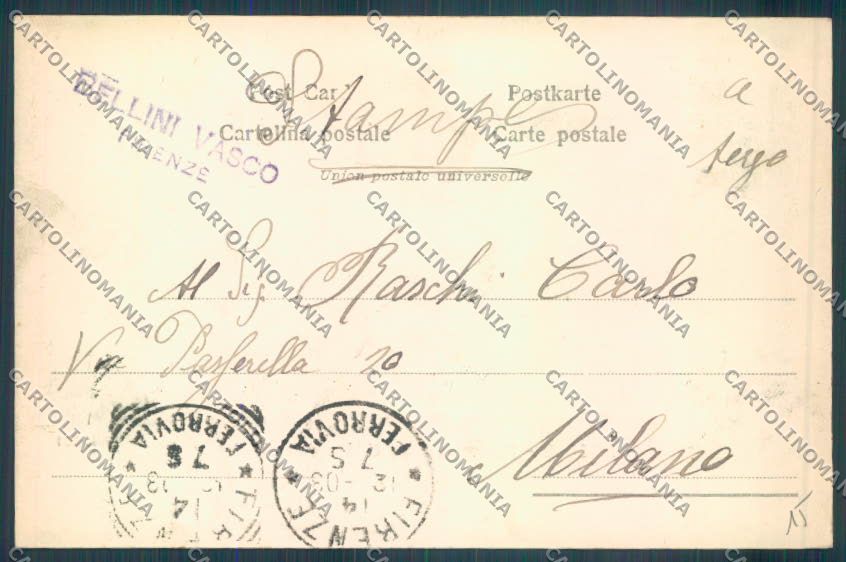 Post Car Postkarte
Stampe
Cartolina postale Carte postale
Union postale universelle
a
tergo
BELLINI VASCO
FIRENZE
Al Sig. Raschi Carlo
Via Passerella 10
Milano
FIRENZE FERROVIA
14
12 - 03
7 S
FIRENZE FERROVIA
14
12 - 03
7 S
15
CARTOLINOMANIA